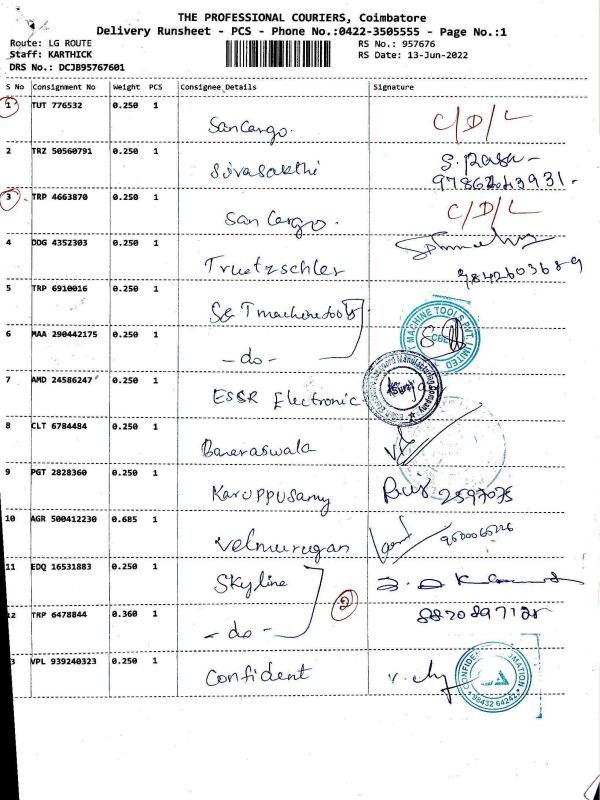 THE PROFESSIONAL COURIERS, Coimbatore
Delivery Runsheet - PCS - Phone No.:0422-3505555 - Page No.:1
Route: LG ROUTE RS No.: 957676
Staff: KARTHICK RS Date: 13-Jun-2022
DRS No.: DCJB95767601
S No Consignment No Weight PCS Consignee Details Signature
1 TUT 776532 0.250 1
San Cargo. C/D/L
2 TRZ 50560791 0.250 1
Sivasakthi
3 TRP 4663870 0.250 1
San Cargo. C/D/L
4 DDG 4352303 0.250 1
Truetzschler 9842603689
5 TRP 6910016 0.250 1
S&T machinetools MACHINE TOOLS PVT. LIMITED
6 MAA 290442175 0.250 1
- do -
7 AMD 24586247 0.250 1
ESSR Electronic
8 CLT 6784484 0.250 1
Banaraswala
9 PGT 2828360 0.250 1
Karuppusamy 2597075
10 AGR 500412230 0.685 1
Velmurugan
11 EDQ 16531883 0.250 1
Skyline
2
12 TRP 6478844 0.360 1
- do -
13 VPL 939240323 0.250 1
Confident
98432 64242